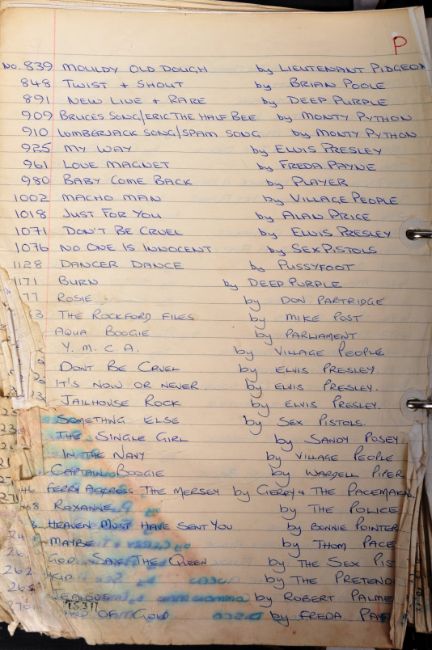 P
No. 839 MOULDY OLD DOUGH by LIEUTENANT PIDGEON
848 TWIST + SHOUT by BRIAN POOLE
891 NEW LIVE + RARE by DEEP PURPLE
909 BRUCES SONG/ERIC THE HALF BEE by MONTY PYTHON
910 LUMBERJACK SONG/SPAM SONG by MONTY PYTHON
925 MY WAY by ELVIS PRESLEY
961 LOVE MAGNET by FREDA PAYNE
980 BABY COME BACK by PLAYER
1002 MACHO MAN by VILLAGE PEOPLE
1018 JUST FOR YOU by ALAN PRICE
1071 DON'T BE CRUEL by ELVIS PRESLEY
1076 NO ONE IS INNOCENT by SEX PISTOLS
1128 DANCER DANCE by PUSSYFOOT
1171 BURN by DEEP PURPLE
77 ROSIE by DON PARTRIDGE
3 THE ROCKFORD FILES by MIKE POST
AQUA BOOGIE by PARLIAMENT
Y.M.C.A. by VILLAGE PEOPLE
DONT BE CRUEL by ELVIS PRESLEY
IT'S NOW OR NEVER by ELVIS PRESLEY.
JAILHOUSE ROCK by ELVIS PRESLEY
SOMETHING ELSE by SEX PISTOLS
THE SINGLE GIRL by SANDY POSEY
IN THE NAVY by VILLAGE PEOPLE
CAPTAIN BOOGIE by WARDELL PIPER
FERRY ACROSS THE MERSEY by GERRY + THE PACEMAK
ROXANNE by THE POLICE
HEAVEN MUST HAVE SENT YOU by BONNIE POINTER
MAYBE by THOM PACE
GOD SAVE THE QUEEN by THE SEX PIS
by THE PRETEND
JEALOUS by ROBERT PALME
TS311 OF GOLD by FREDA PAY